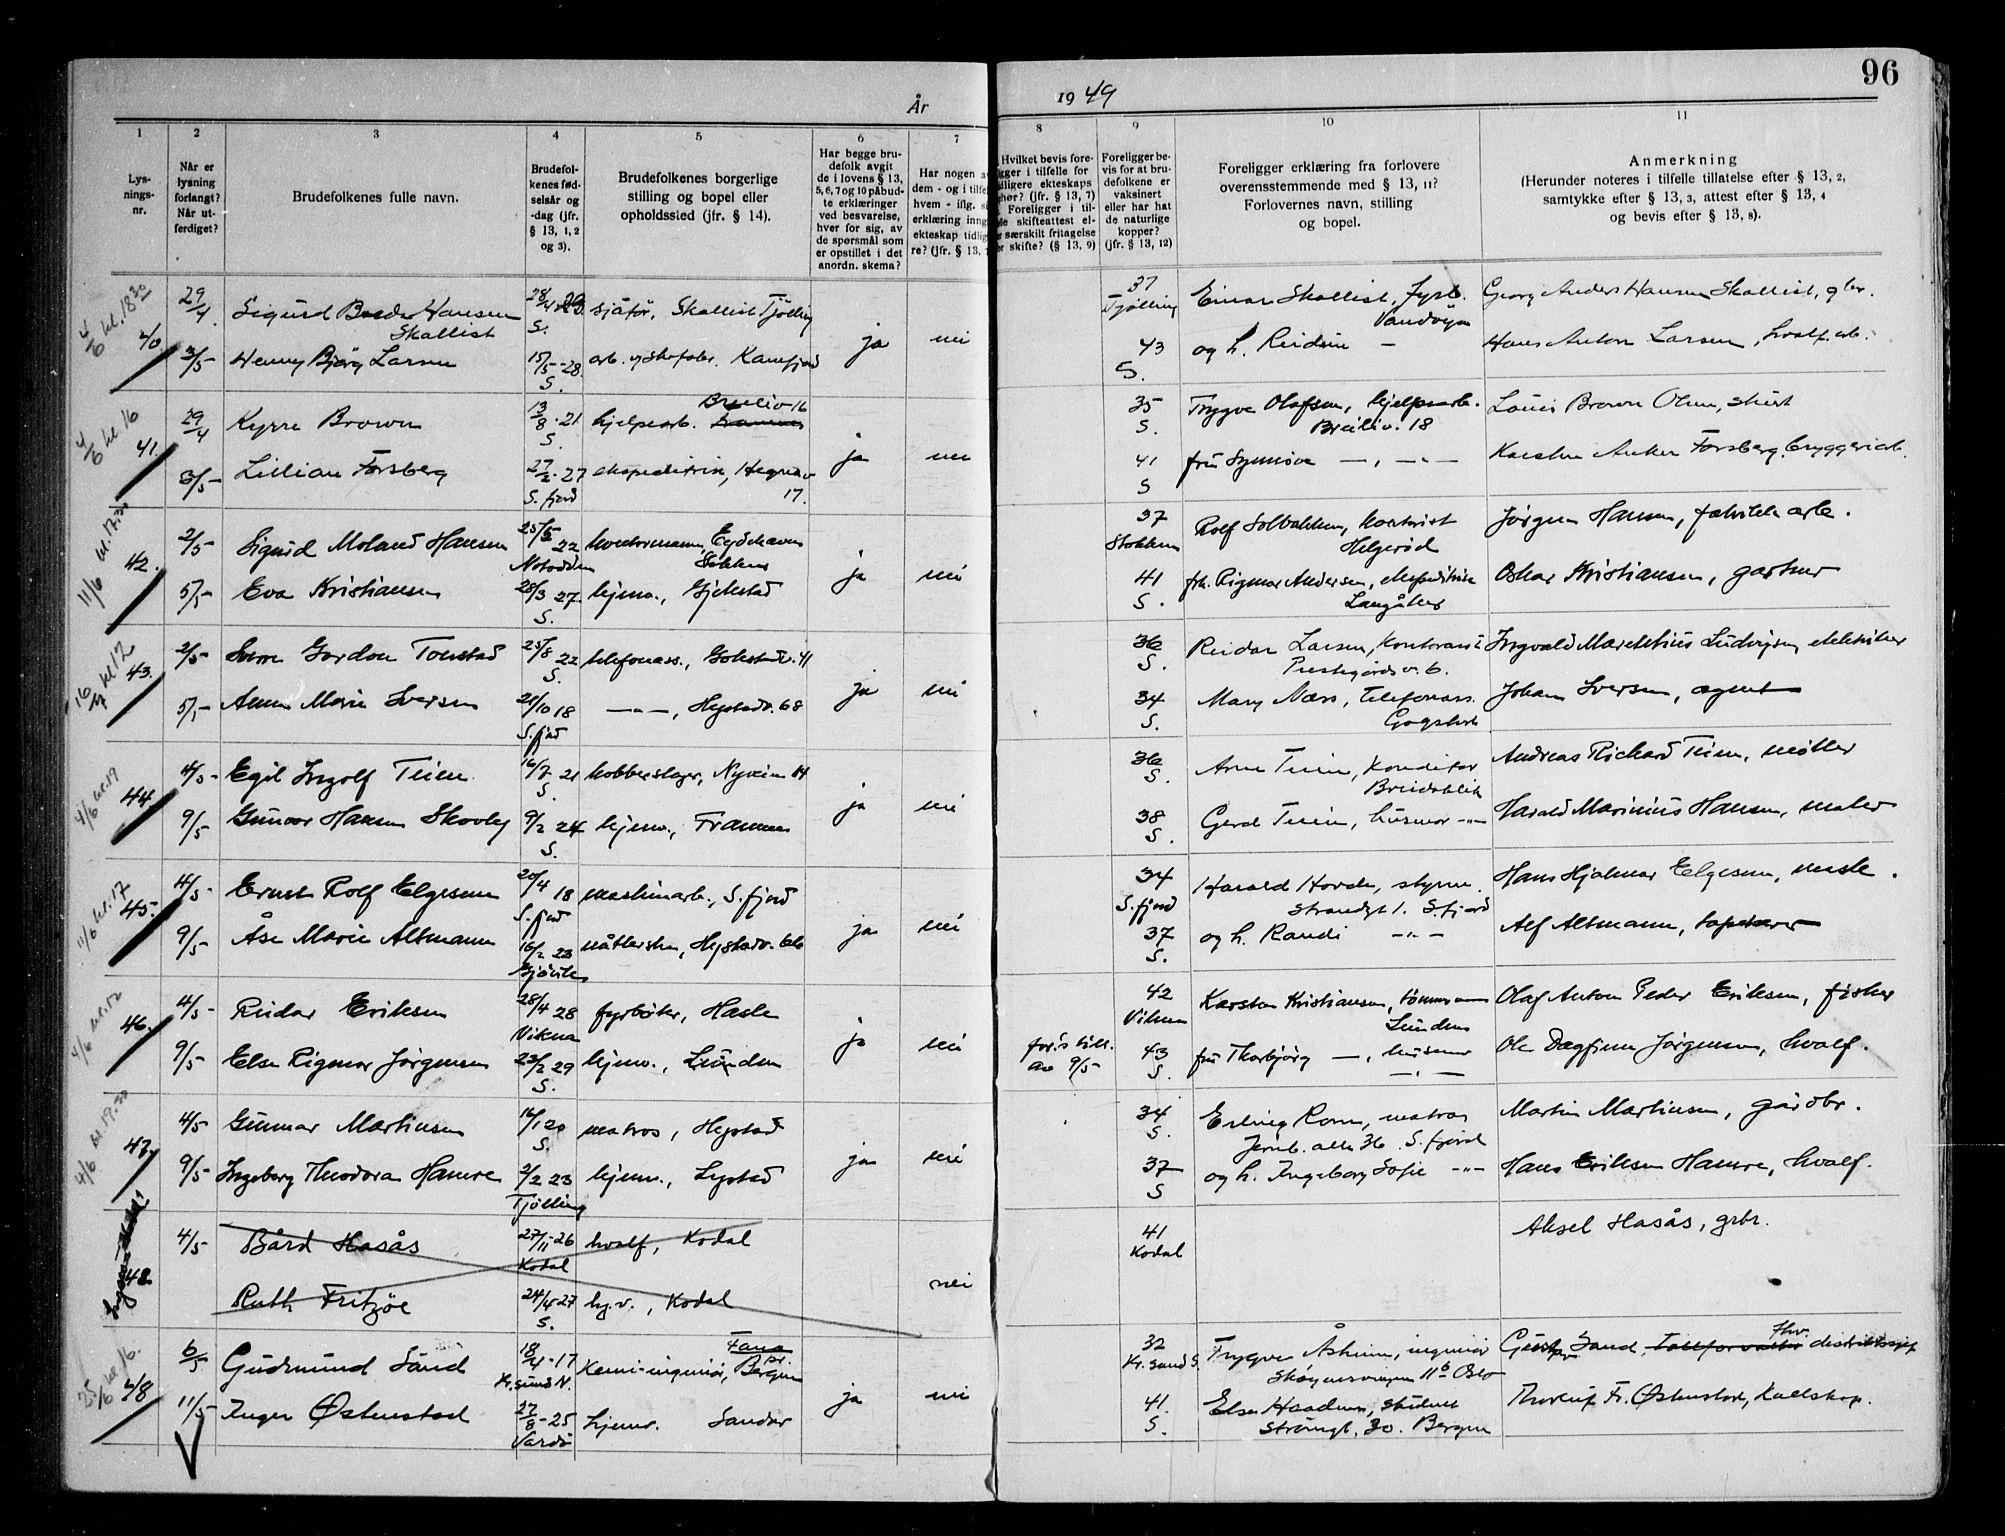 96
År 1949
1
2
3
4
5
6
7
8
9
10
11
Lys-
nings-
nr.
Når er
lysning
forlangt?
Når ut-
ferdiget?
Brudefolkenes fulle navn.
Brudefol-
kenes fød-
selsår og
-dag (jfr.
§ 13, 1, 2
og 3).
Brudefolkenes borgerlige
stilling og bopel eller
opholdssied (jfr. § 14).
Har begge bru-
defolk avgit
de i lovens § 13,
5, 6, 7 og 10 påbud-
te erklæringer
ved besvarelse,
hver for sig, av
de spørsmål som
er opstillet i det
anordn. skema?
Har nogen a
dem - og i tilfe
hvem - iflg. s
erklæring inng
ekteskap tidlig
re? (jfr. § 13, 7
Hvilket bevis fore-
gger i tilfelle for
dligere ekteskaps
phør? (jfr. § 13, 7)
Foreligger i til-
le skifteattest el-
r særskilt fritagelse
r skifte? (§ 13, 9)
Foreligger be-
vis for at bru-
defolkene er
vaksinert
eller har hat
de naturlige
kopper?
(jfr. § 13, 12)
Foreligger erklæring fra forlovere
overensstemmende med § 13, 11?
Forlovernes navn, stilling
og bopel.
Anmerkning
(Herunder noteres i tilfelle tillatelse efter § 13, 2,
samtykke efter § 13, 3, attest efter § 13, 4
og bevis efter § 13, 8).
4/6 kl. 18 30
40
29/4 Sigurd Hansen 28/4 sjåfør, Skallist Tjølling 37 Einar Skallist, Georg Anders Hansen Skallist, gbr.
Skallist S. Tjølling
ja nei
3/5 Wenny Bjørg Larsen 15/5-28. 43 og h. Hans Anton Larsen, hvalf. arb.
S. S.
4/6 kl 16
41.
Breiliv. 16
29/4 Kyrre Brown 13/8-21 hjelpearb. 35 Trygve Olafsen, hjelpearb. Louis Brown Olsen,
S. S. Breiliv. 18
ja nei
3/5 Lillian Forsberg 27/2-27 ekspeditrise, Hegnav 41 fru Synnøve — „ — Karsten Anker Forsberg, bryggeriarb.
S. fjord 17. S
11/6 kl. 17.30
42.
2/5 Sigurd Moland Hansen 22 kontormann, 37 Rolf Solbakken, kontorist Jørgen Hansen, fabrikk arb.
Notodden Stokken Helgerød
ja nei
5/5 Eva Kristiansen 28/3 27. hjemv., Gjekstad 41 frk. Rigmor Andersen, ekspeditrise Oskar Kristiansen, gartner
S. S. Langåker
16/7 kl 12
43.
2/5 Gordon Tonstad 25/8 22 telefonass., Gokstadv. 41 36 Reidar Larsen, Kontorass. Ingvald Ludvigsen, elektriker
S. S. Prestegårdsv. 6.
ja nei
5/5 Anna Marie Iversen 21/10 18 — „ —, Hystadv. 68 34 Mary Næss, Telefonass. Johan Iversen, agent
S. fjord S.
4/6 kl. 19
44
4/5 Egil Ingolf Teien 21 kobberslager, Nyveien 14 36 Arne Teien, Konditor Andreas Richard Teien, møller
S. S. Breidablik
ja nei
9/5 Gunvor Hansen Skovly 9/2 24 hjemv., Framnes 38 Gerd Teien, husmor -„- Harald Marinius Hansen, maler
S. S.
11/6 kl. 17
45.
4/5 Ernst Rolf Elgesem 20/4 18 maskinarb., S. fjord 34 Harald Hovde, styrm. Hans Hjalmar Elgesem,
S. fjord S. fjord Strandgt 1. S. fjord
ja nei
9/5 Åse Marie Altmann 16/2 23 Hystadv. 66 37 og h. Randi -„- Alf Altmann, tapetserer
Gjøvik S.
46.
4/5 Reidar Eriksen 28/4 28 fyrbøter, Hasle 42 Karsten Kristiansen, tømmerm. Olaf Anton Peder Eriksen, fisker
Vikna Vikna Lunden
ja nei
9/5 Else Rigmor Jørgensen 23/2 29 hjemv., Lunden for.s till. av 9/5 43 fru Thorbjørg —, husmor Ole Dagfinn Jørgensen, hvalf.
S. S. — „ —
47.
4/5 Gunnar Martinsen 20 matros, Hystad 34 Erling Rom, matros Martin Martinsen, gårdbr.
S. S. Jernb. alle 36 S. fjord
ja nei
9/5 Ingeborg Theodora Hamre 2/2 23 hjemv., Lystad 37 og h. Ingeborg Sofie -„- Hans Eriksen Hamre, hvalf.
Tjølling S
48.
4/5 Bård Hasås 27/11-26 hvalf, Kodal 41 Aksel Hasås, grbr.
Kodal Kodal
nei
Ruth Fritzøe 24/4-27 hj.v., Kodal
S.
25/6 kl 16.
48
6/5 Gudmund Sand 18/4-17 Kemi-ingeniør, Fana pr. Bergen 32 Trygve Åsheim, ingeniør Gustav Sand, Tollforvalter fhv. distriktssjef
Kr.sund N. Kr. sund S. Skøyensveien 11 b Oslo
ja nei
11/5 Inger Østenstad 27/8-25 hjemv. Sandar 41. Else Haadem, student Thorleif Fr. Østenstad, Kullskap.
Vardø S. Strømgt. 30. Bergen